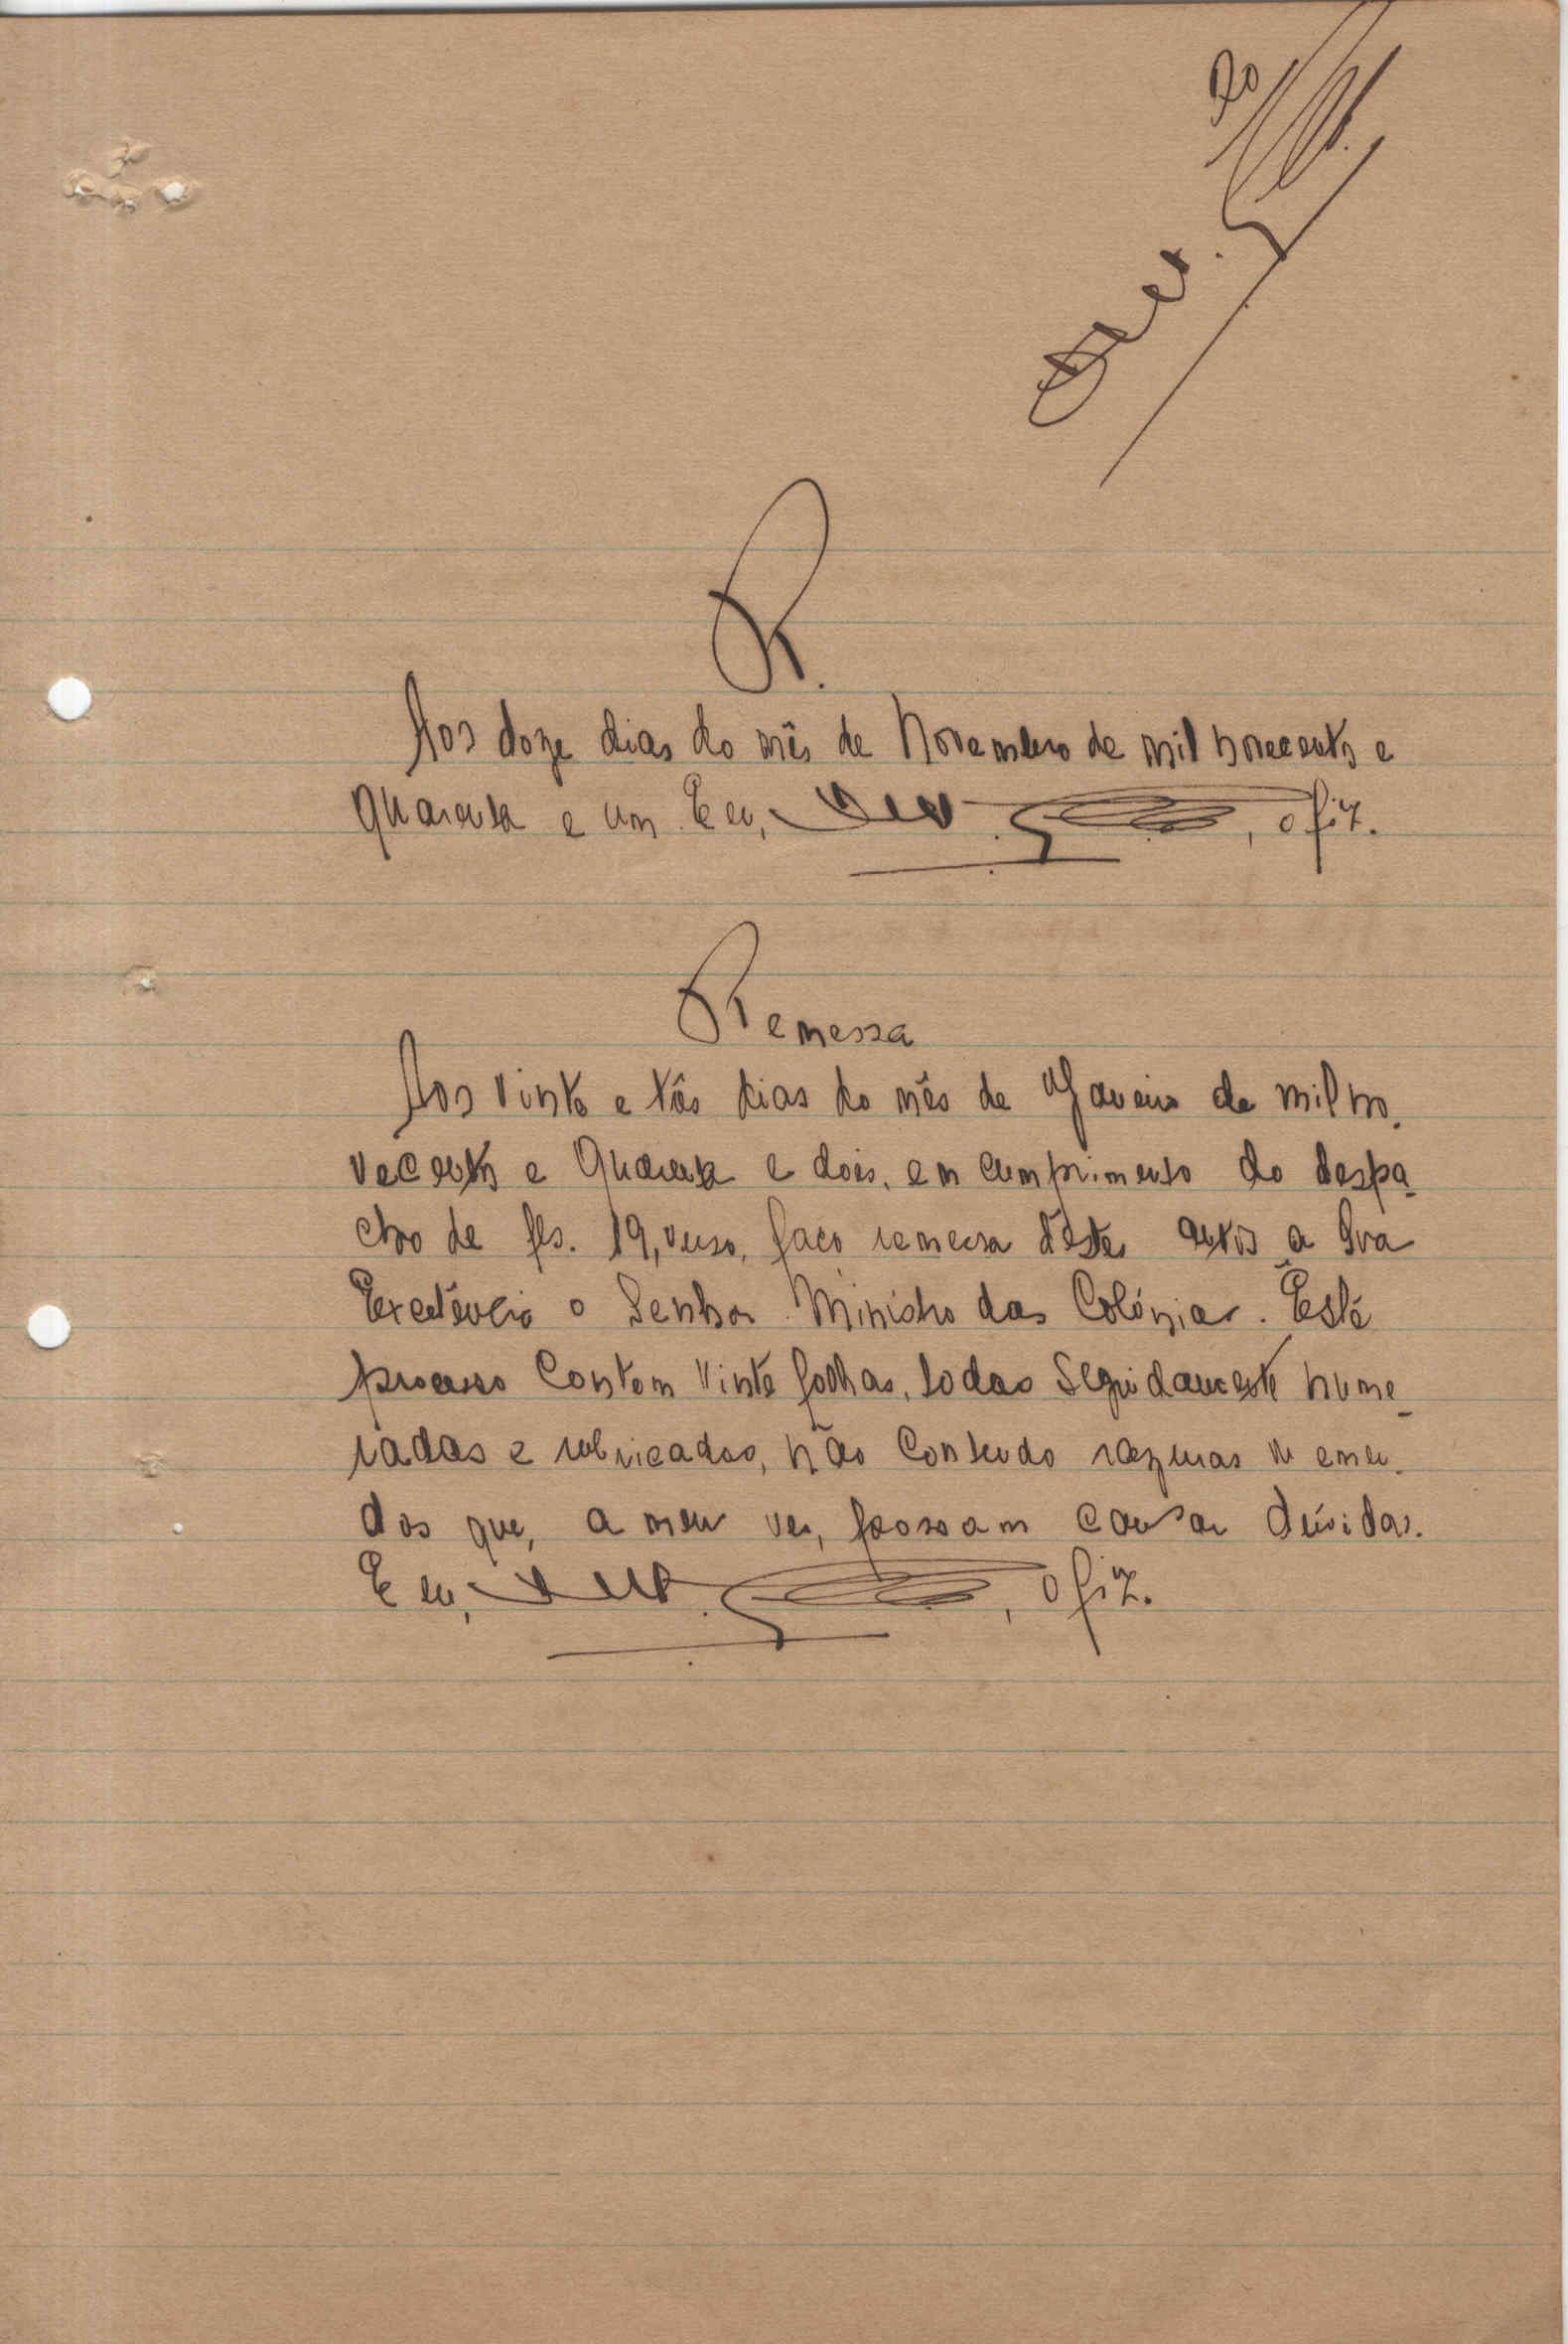 20
R.
Aos doze dias do mês de Novembro de mil novecentos e
quarenta e um. E eu, , o fiz.
Remessa
Aos vinte e três dias do mês de Janeiro de mil no-
vecentos e quarenta e dois, em cumprimento do despa-
cho de fls. 19, verso, faço remessa dêstes autos a Sua
Excelência o Senhor Ministro das Colónias. Êste
processo contem vinte folhas, todas seguidamente nume-
radas e rubricadas, não contendo razuras ou emen-
das que, a meu ver, possam causar dúvidas.
E eu, , o fiz.